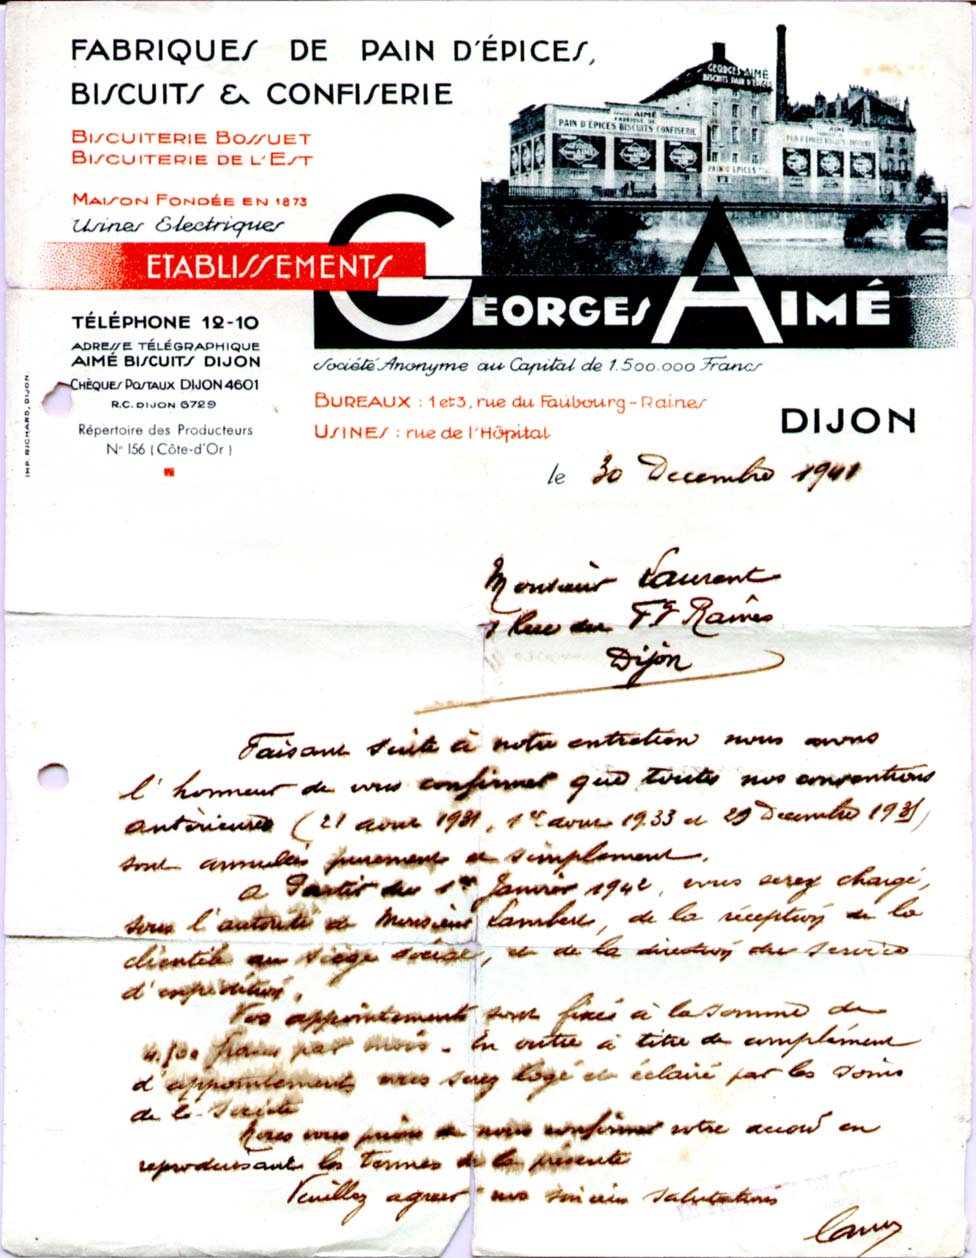 FABRIQUES DE PAIN D'ÉPICES,
BISCUITS & CONFISERIE
BISCUITERIE BOSSUET
BISCUITERIE DE L'EST
MAISON FONDÉE EN 1873
Usines Electriques
ETABLISSEMENTS
GEORGES AIMÉ
GEORGES AIMÉ
BISCUITS PAIN D'ÉPICES
AIMÉ
PAIN D'ÉPICES BISCUITS CONFISERIE
AIMÉ
PAIN D'ÉPICES BISCUITS CONFISERIE
PAIN D'ÉPICES
TÉLÉPHONE 12-10
ADRESSE TÉLÉGRAPHIQUE
AIMÉ BISCUITS DIJON
CHÈQUES POSTAUX DIJON 4601
R.C. DIJON 6729
Répertoire des Producteurs
N° 156 (Côte-d'Or)
IMP. RICHARD, DIJON.
Société Anonyme au Capital de 1.500.000 Francs
BUREAUX : 1 et 3, rue du Faubourg-Raines
USINES : rue de l'Hôpital
DIJON
le 30 Decembre 1941
Monsieur Laurent
1 Rue du Fg Raines
Dijon
Faisant suite à notre entretien nous avons
l'honneur de vous confirmer que toutes nos conventions
antérieures (21 aout 1931, 1er aout 1933 et 29 Decembre 193
sont annulées purement et simplement.
A Partir du 1er Janvier 1942, vous serez chargé,
sous l'autorité de Monsieur Lambert, de la réception de la
clientèle au siège social, et de la direction du service
d'expédition.
Vos appointements sont fixés à la somme de
francs par mois. En outre à titre de complément
d'appointements vous serez logé et éclairé par les soins
de la Société
Nous vous prions de nous confirmer votre accord en
reproduisant les termes de la présente
Veuillez agréer nos sincères salutations